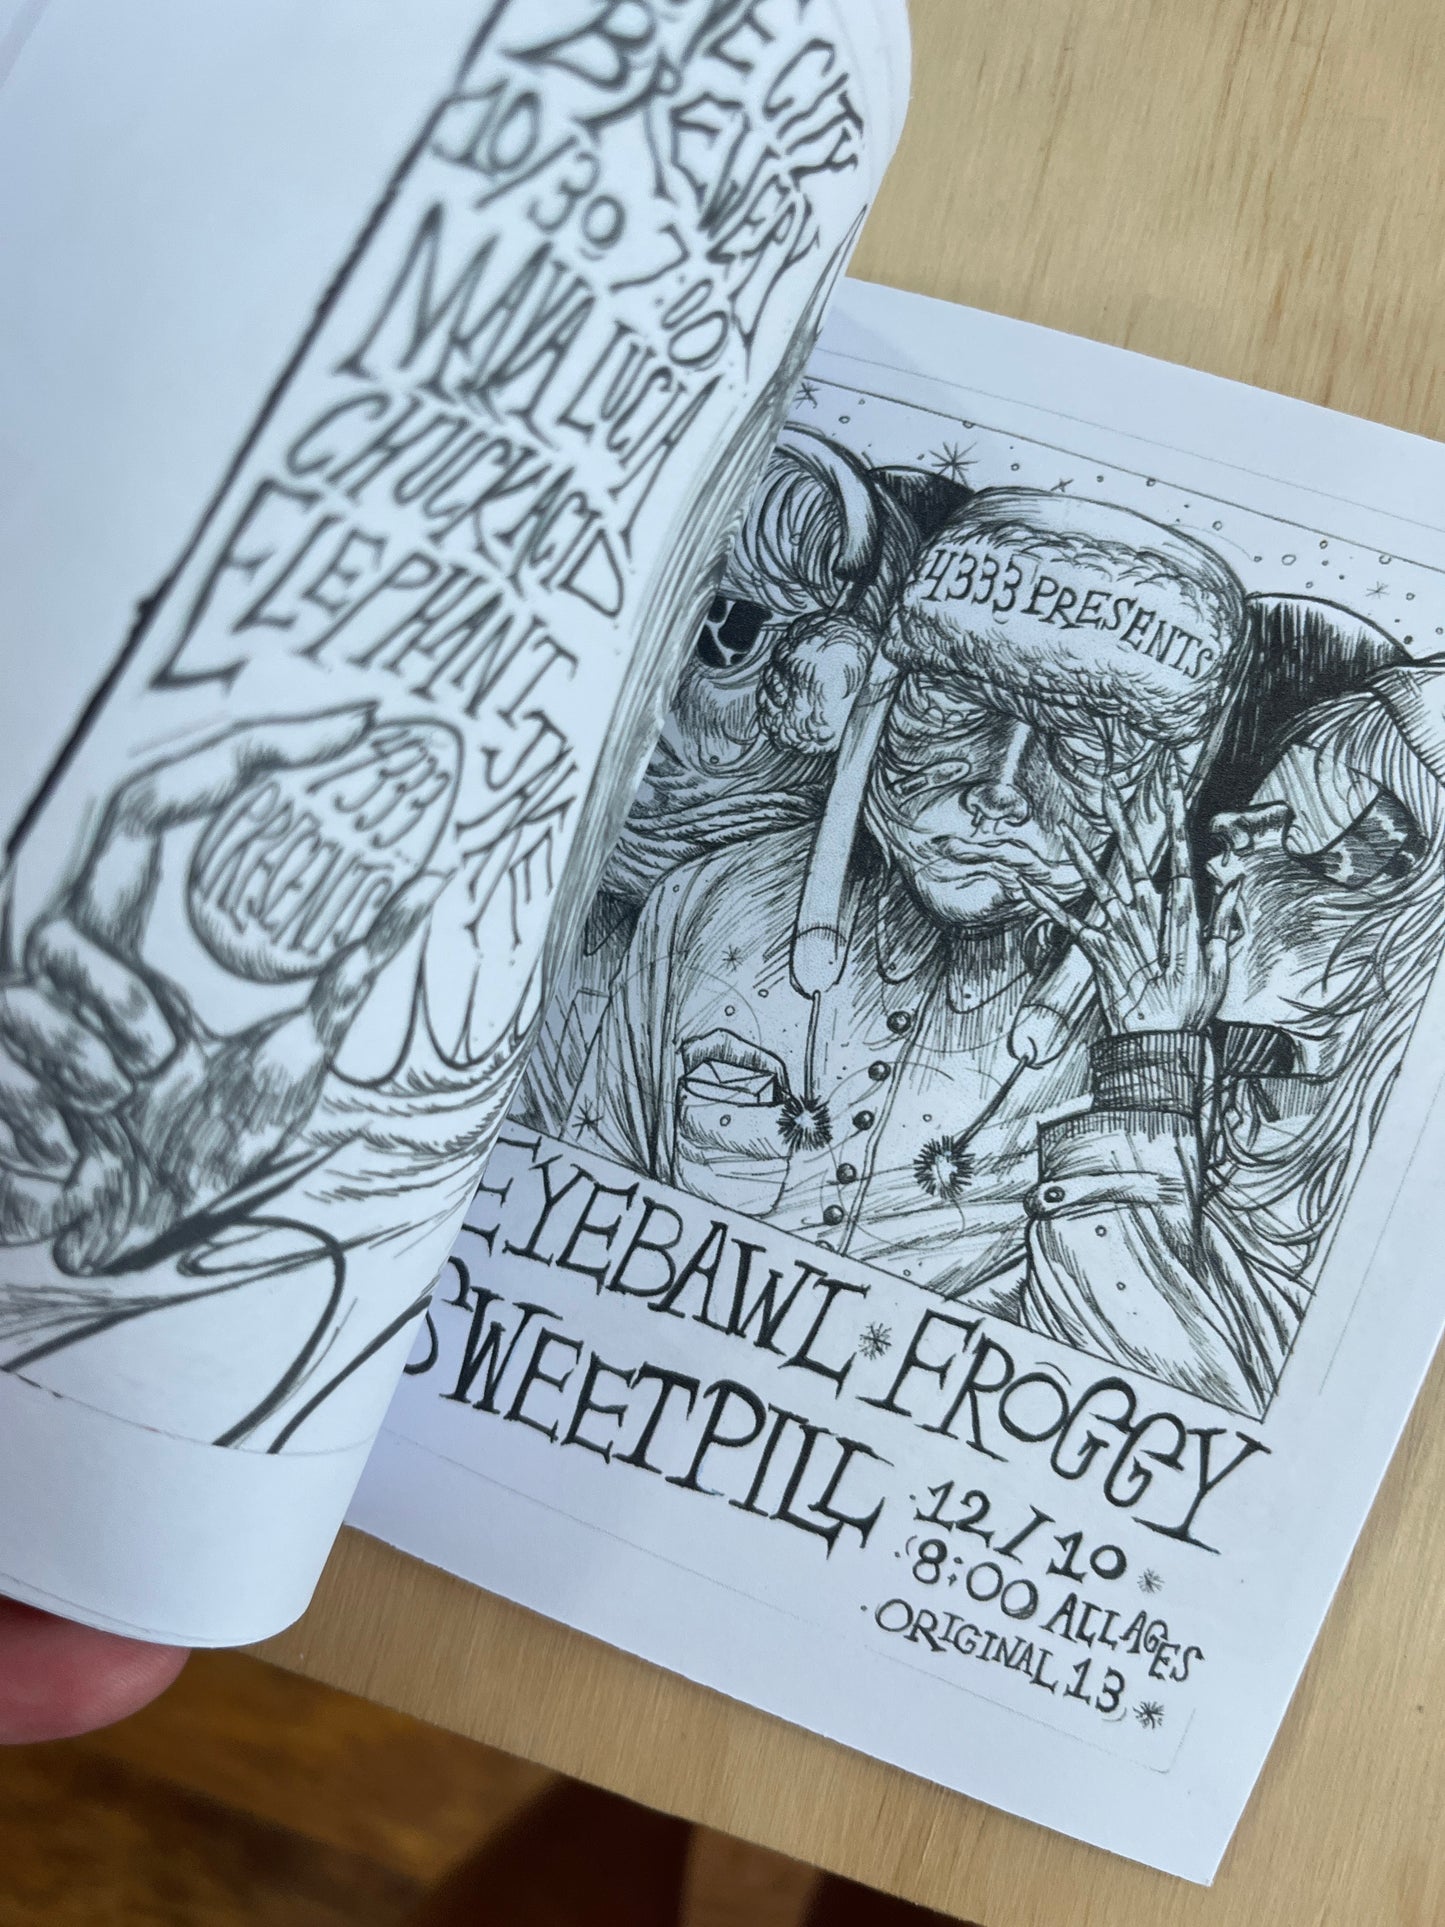 CITY
BREWERY
10/30 7:00
MAYA LUCIA
CHUCK ACID
ELEPHANT JAKE
4333
PRESENTS
4333 PRESENTS
EYEBAWL * FROGGY
SWEETPILL
12/10 *
8:00 ALL AGES
ORIGINAL 13 *